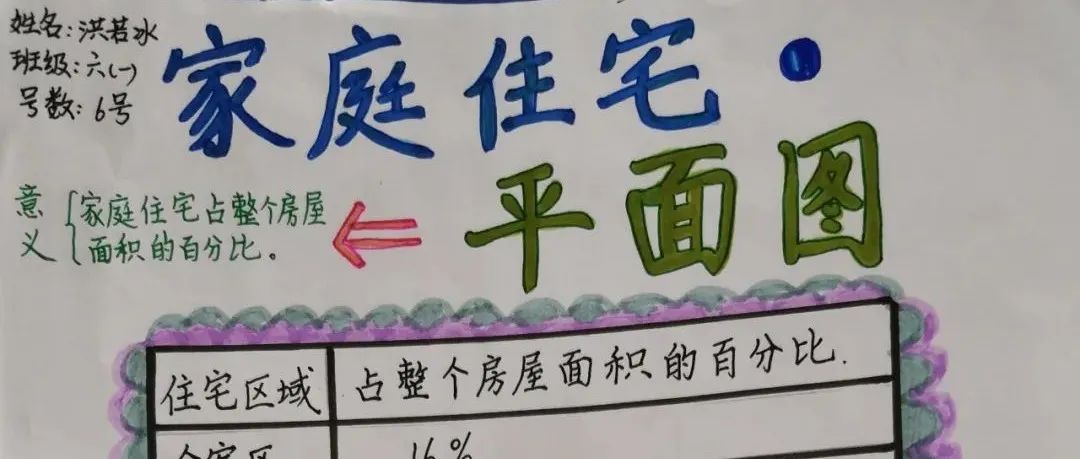 姓名:洪若冰
班级:六(一)
号数:6号
家庭住宅·
平面图
意义{家庭住宅占整个房屋
面积的百分比。
住宅区域 占整个房屋面积的百分比.
16%